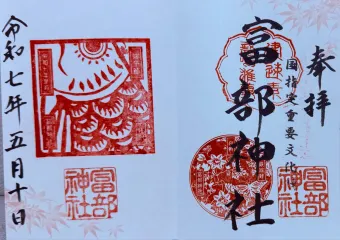 奉拝
国指定重要文化
富部神社
富部
神社
令和七年五月十日
富部
神社